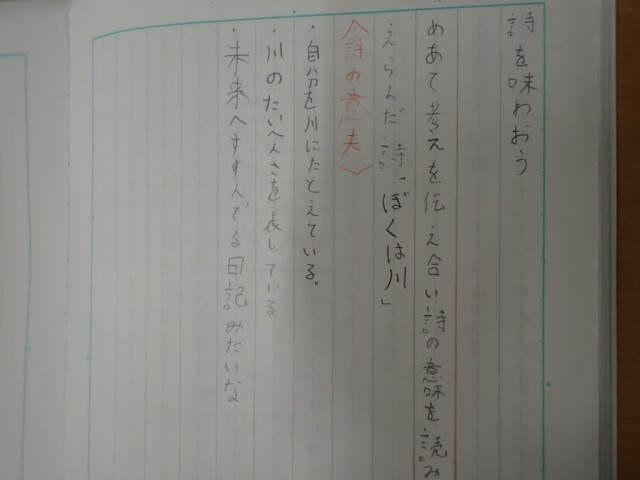 詩を味わおう
めあて考えを伝え合い詩の意味を読み
えらんだ詩「ぼくは川」
〈詩の意夫〉
・自分を川にたとえている。
・川のたいへんさを表している
・未来へすすんでる日記みたいな